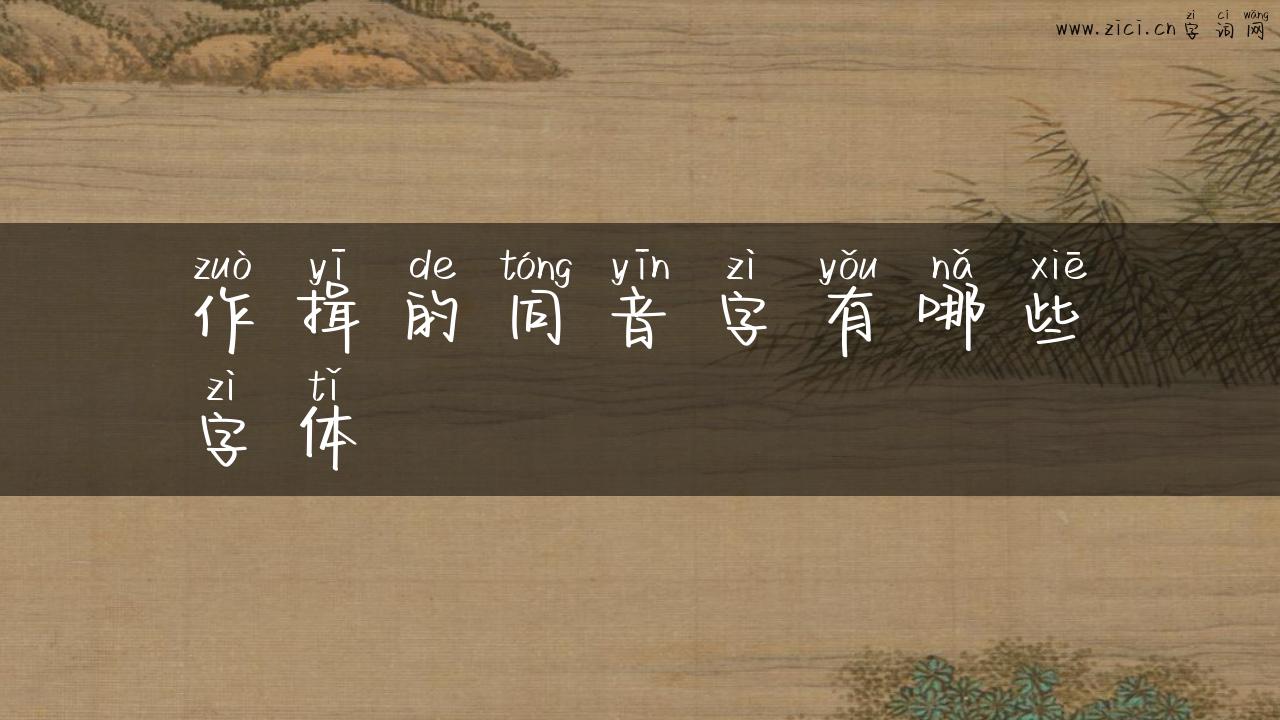 zì cí wǎng
www.zici.cn 字 词 网
zuò yī de tóng yīn zì yǒu nǎ xiē
作 揖 的 同 音 字 有 哪 些
zì tǐ
字 体